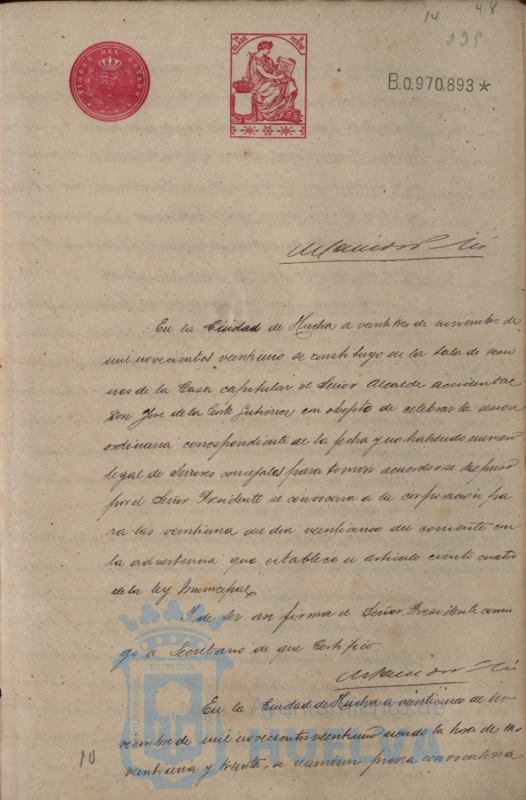 14
48
235
TIMBRE DEL ESTADO
CLASE
B.0.970,893*
En la Ciudad de Huelva a veintitres de noviembre de
mil novecientos veintiuno se constituyo en la Sala de sesio
nes de la Casa capitular el Señor Alcalde accidental
Don José de la Corte Gutierrez con objeto de celebrar la sesion
ordinaria correspondiente de la fecha y no habiendo numero
legal de Señores concejales para tomar acuerdos se dispuso
por el Señor Presidente se convocara a la corporación pa
ra las veintiuna del dia veinticinco del corriente con
la advertencia que establece el articulo ciento cuatro
de la ley Municipal
Y de ser asi firma el Señor Presidente conmi
go el Secretario de que Certifico
En la Ciudad de Huelva a veinticinco de No
viembre de mil novecientos veintiuno siendo la hora de las
veintiuna y treinta, se reunieron previa convocatoria
10
Ayuntamiento de
HUELVA